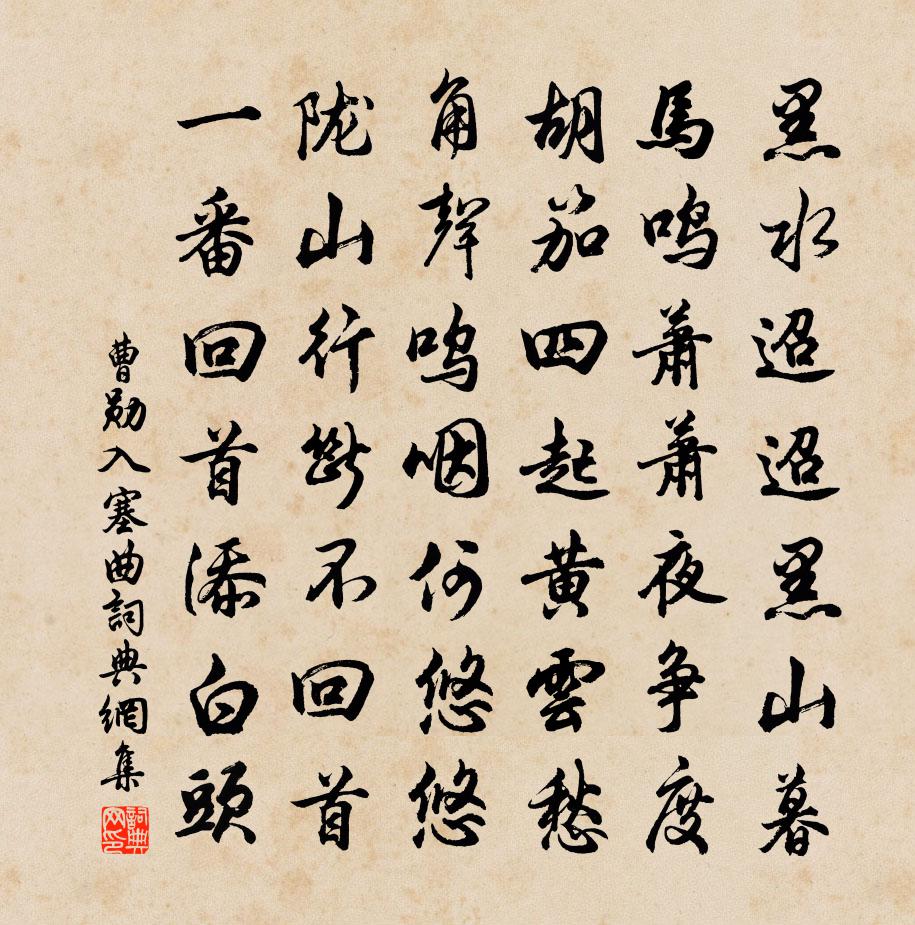 黑水迢迢黑山暮
馬鳴蕭蕭夜爭度
胡笳四起黄雲愁
角聲鳴咽何悠悠
陇山行斷不回首
一番回首添白頭
曹勛入塞曲詞典網集
詞典网印